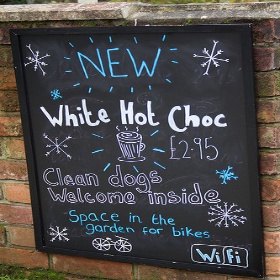 NEW
White Hot Choc
£2.95
Clean dogs
Welcome inside
Space in the
garden for bikes
Wifi